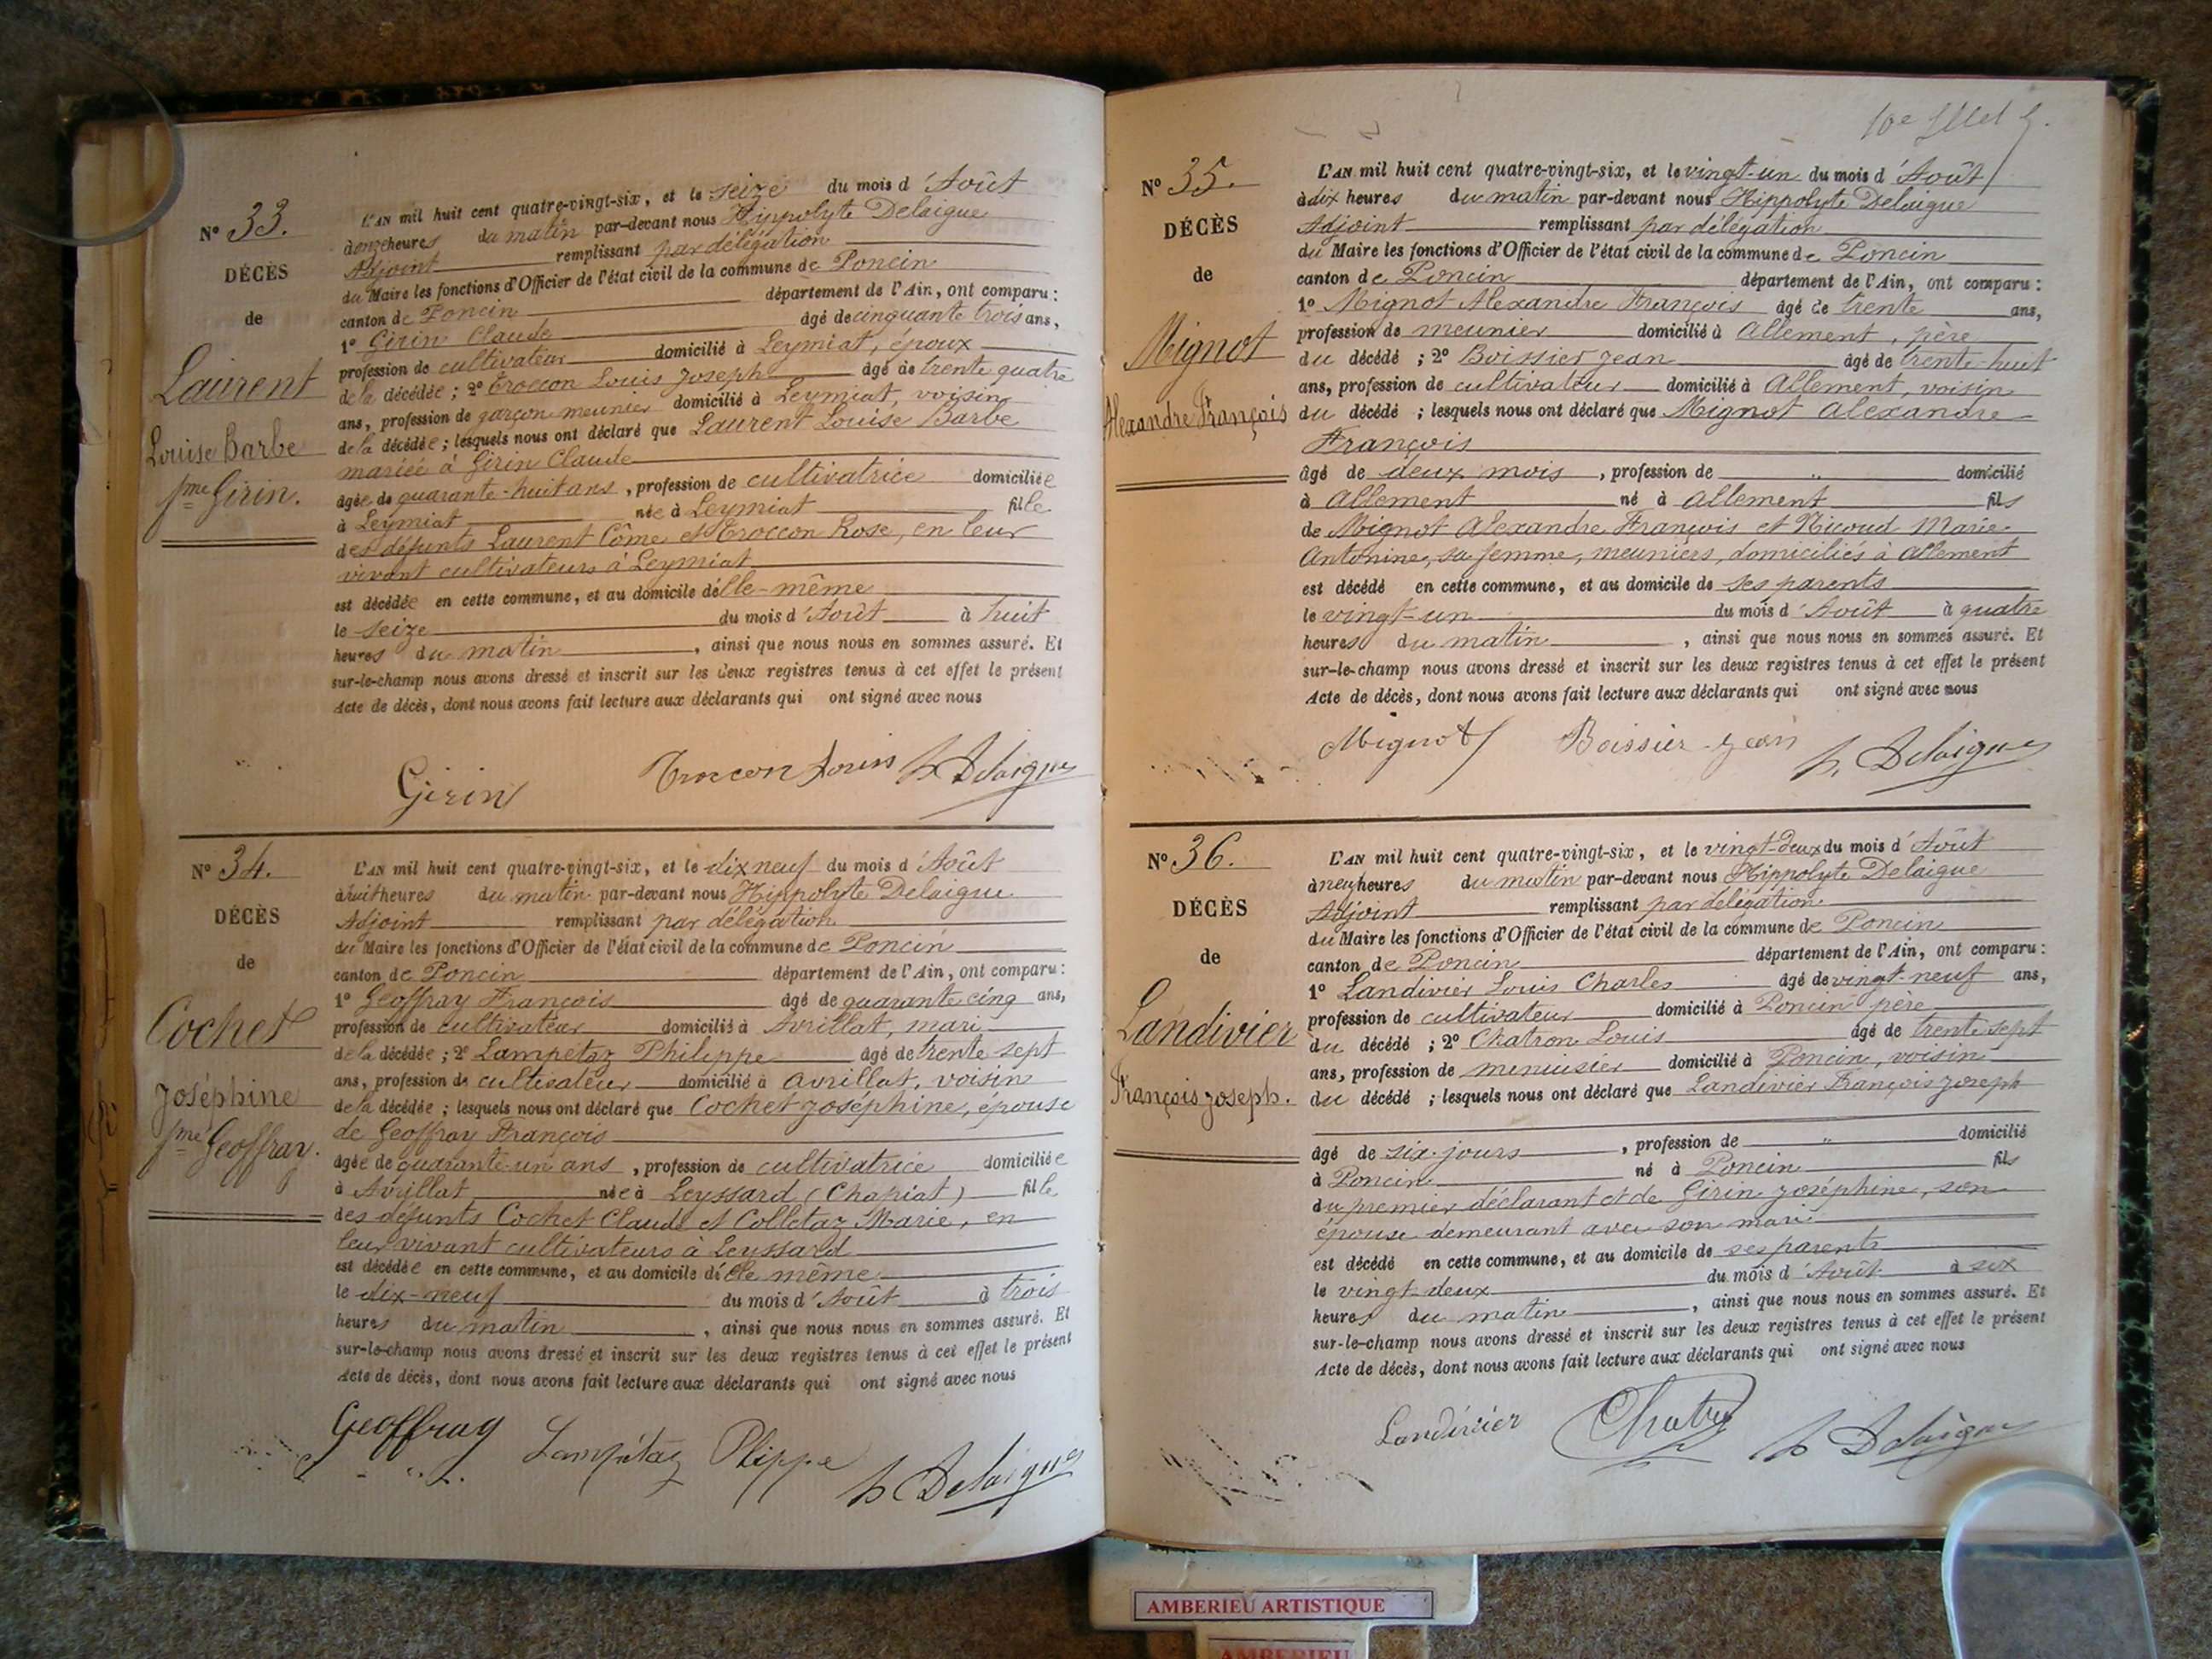 N° 33.
DÉCÈS
de
Laurent
Louise Barbe
fme Girin.
L'AN mil huit cent quatre-vingt-six, et le seize du mois d'Août
à onze heures du matin par-devant nous Hippolyte Delaigue
Adjoint remplissant par délégation
du Maire les fonctions d'Officier de l'état civil de la commune de Poncin
canton de Poncin département de l'Ain, ont comparu :
1° Girin Claude âgé de cinquante trois ans,
profession de cultivateur domicilié à Leymiat, époux
de la décédée ; 2° Troccon Louis Joseph âgé de trente quatre
ans, profession de garçon meunier domicilié à Leymiat, voisin
de la décédée ; lesquels nous ont déclaré que Laurent Louise Barbe
mariée à Girin Claude
âgée de quarante-huit ans, profession de cultivatrice domiciliée
à Leymiat née à Leymiat fille
des défunts Laurent Côme et Troccon Rose, en leur
vivant cultivateurs à Leymiat
est décédée en cette commune, et au domicile d'elle-même
le seize du mois d'Août à huit
heures du matin, ainsi que nous nous en sommes assuré. Et
sur-le-champ nous avons dressé et inscrit sur les deux registres tenus à cet effet le présent
Acte de décès, dont nous avons fait lecture aux déclarants qui ont signé avec nous
Girin Troccon Louis h Delaigue
N° 34.
DÉCÈS
de
Cochet
Joséphine
fme Geoffray.
L'AN mil huit cent quatre-vingt-six, et le dix neuf du mois d'Août
à huit heures du matin par-devant nous Hippolyte Delaigue
Adjoint remplissant par délégation
du Maire les fonctions d'Officier de l'état civil de la commune de Poncin
canton de Poncin département de l'Ain, ont comparu :
1° Geoffray François âgé de quarante cinq ans,
profession de cultivateur domicilié à Avrillat, mari
de la décédée ; 2° Lampétaz Philippe âgé de trente sept
ans, profession de cultivateur domicilié à Avrillat, voisin
de la décédée ; lesquels nous ont déclaré que Cochet Joséphine, épouse
de Geoffray François
âgée de quarante-un ans, profession de cultivatrice domiciliée
à Avrillat née à Leyssard (Chapiat) fille
des défunts Cochet Claude et Colletaz Marie, en
leur vivant cultivateurs à Leyssard
est décédée en cette commune, et au domicile d'elle même
le dix-neuf du mois d'Août à trois
heures du matin, ainsi que nous nous en sommes assuré. Et
sur-le-champ nous avons dressé et inscrit sur les deux registres tenus à cet effet le présent
Acte de décès, dont nous avons fait lecture aux déclarants qui ont signé avec nous
Geoffray Lampétaz Phippe h Delaigue
N° 35.
DÉCÈS
de
Mignot
Alexandre François
L'AN mil huit cent quatre-vingt-six, et le vingt-un du mois d'Août
à dix heures du matin par-devant nous Hippolyte Delaigue
Adjoint remplissant par délégation
du Maire les fonctions d'Officier de l'état civil de la commune de Poncin
canton de Poncin département de l'Ain, ont comparu :
1° Mignot Alexandre François âgé de trente ans,
profession de meunier domicilié à Allement, père
du décédé ; 2° Boissier Jean âgé de trente-huit
ans, profession de cultivateur domicilié à Allement, voisin
du décédé ; lesquels nous ont déclaré que Mignot Alexandre
François
âgé de deux mois, profession de " domicilié
à Allement né à Allement fils
de Mignot Alexandre François et Nicoud Marie
Antonine, sa femme, meuniers, domiciliés à Allement
est décédé en cette commune, et au domicile de ses parents
le vingt-un du mois d'Août à quatre
heures du matin, ainsi que nous nous en sommes assuré. Et
sur-le-champ nous avons dressé et inscrit sur les deux registres tenus à cet effet le présent
Acte de décès, dont nous avons fait lecture aux déclarants qui ont signé avec nous
Mignot Boissier Jean h. Delaigue
N° 36.
DÉCÈS
de
Landivier
François Joseph.
L'AN mil huit cent quatre-vingt-six, et le vingt-deux du mois d'Août
à neuf heures du matin par-devant nous Hippolyte Delaigue
Adjoint remplissant par délégation
du Maire les fonctions d'Officier de l'état civil de la commune de Poncin
canton de Poncin département de l'Ain, ont comparu :
1° Landivier Louis Charles âgé de vingt-neuf ans,
profession de cultivateur domicilié à Poncin père
du décédé ; 2° Chatron Louis âgé de trente sept
ans, profession de menuisier domicilié à Poncin, voisin
du décédé ; lesquels nous ont déclaré que Landivier François Joseph
âgé de six jours, profession de " domicilié
à Poncin né à Poncin fils
du premier déclarant et de Girin Joséphine, son
épouse demeurant avec son mari
est décédé en cette commune, et au domicile de ses parents
le vingt deux du mois d'Août à six
heures du matin, ainsi que nous nous en sommes assuré. Et
sur-le-champ nous avons dressé et inscrit sur les deux registres tenus à cet effet le présent
Acte de décès, dont nous avons fait lecture aux déclarants qui ont signé avec nous
Landivier h Delaigue
AMBERIEU ARTISTIQUE
AMBERIEU